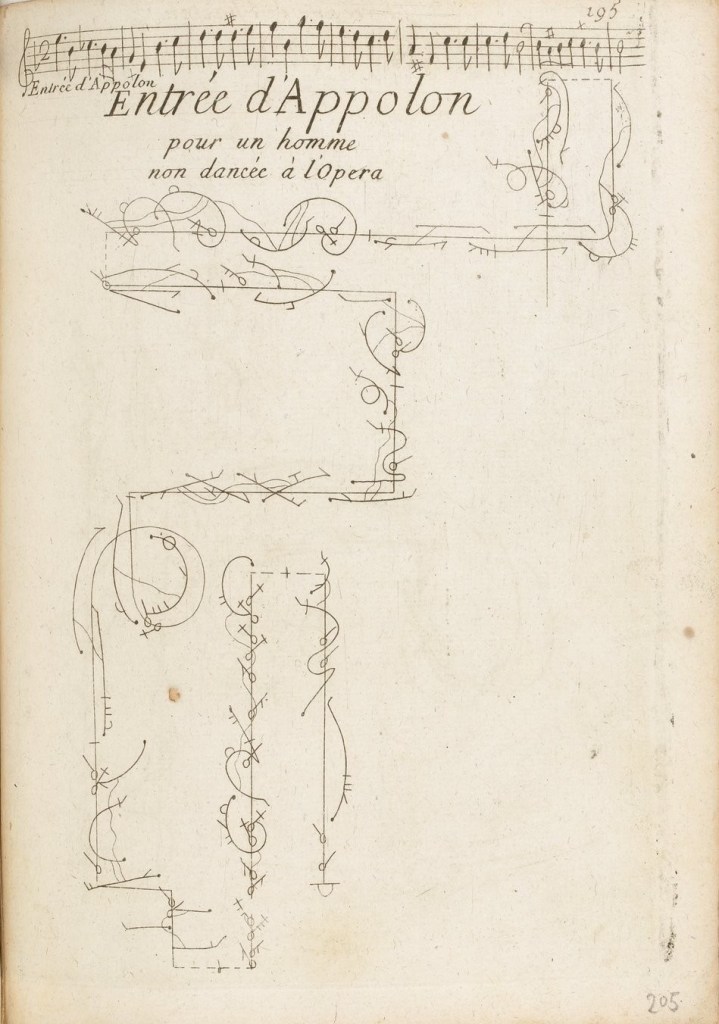 195
2
Entrée d'Appolon
Entrée d'Appolon
pour un homme
non dancée à l'Opera
205